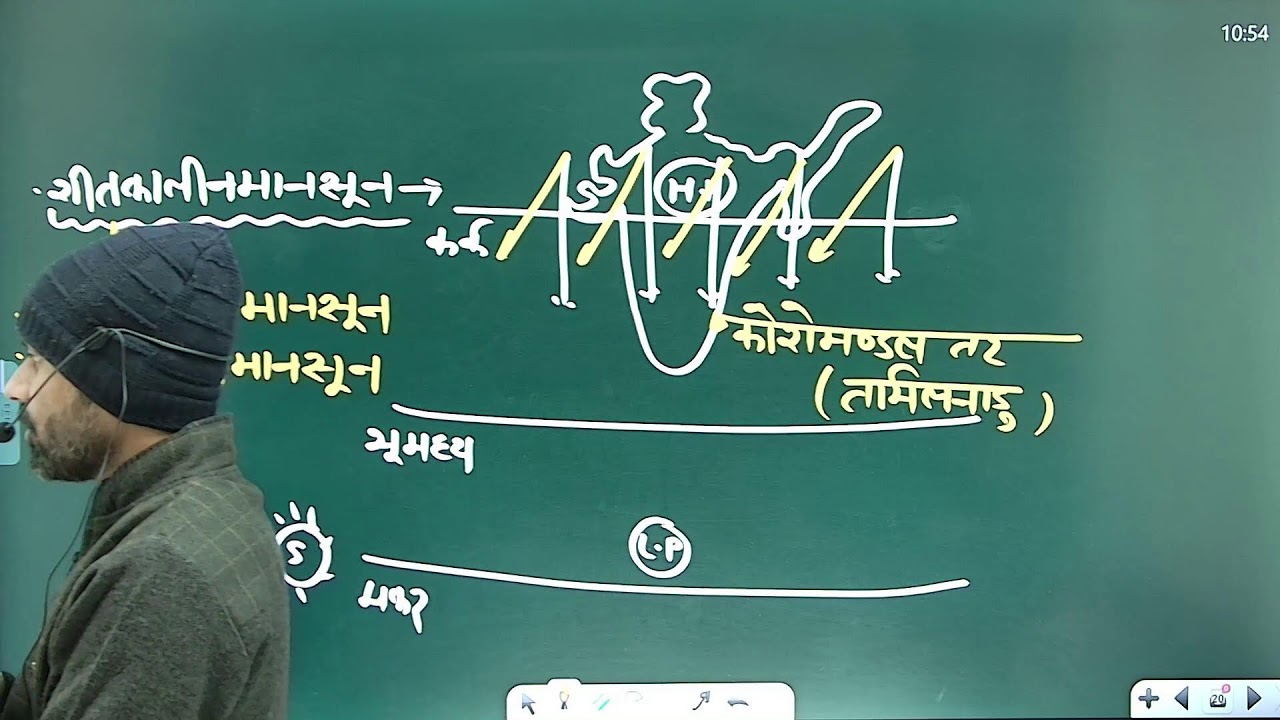 10:54
शीतकालीन मानसून →
H.P
कर्क
मानसून
मानसून
कोरोमण्डल तट
(तामिलनाडु)
भूमध्य
S
L.P
मकर
20